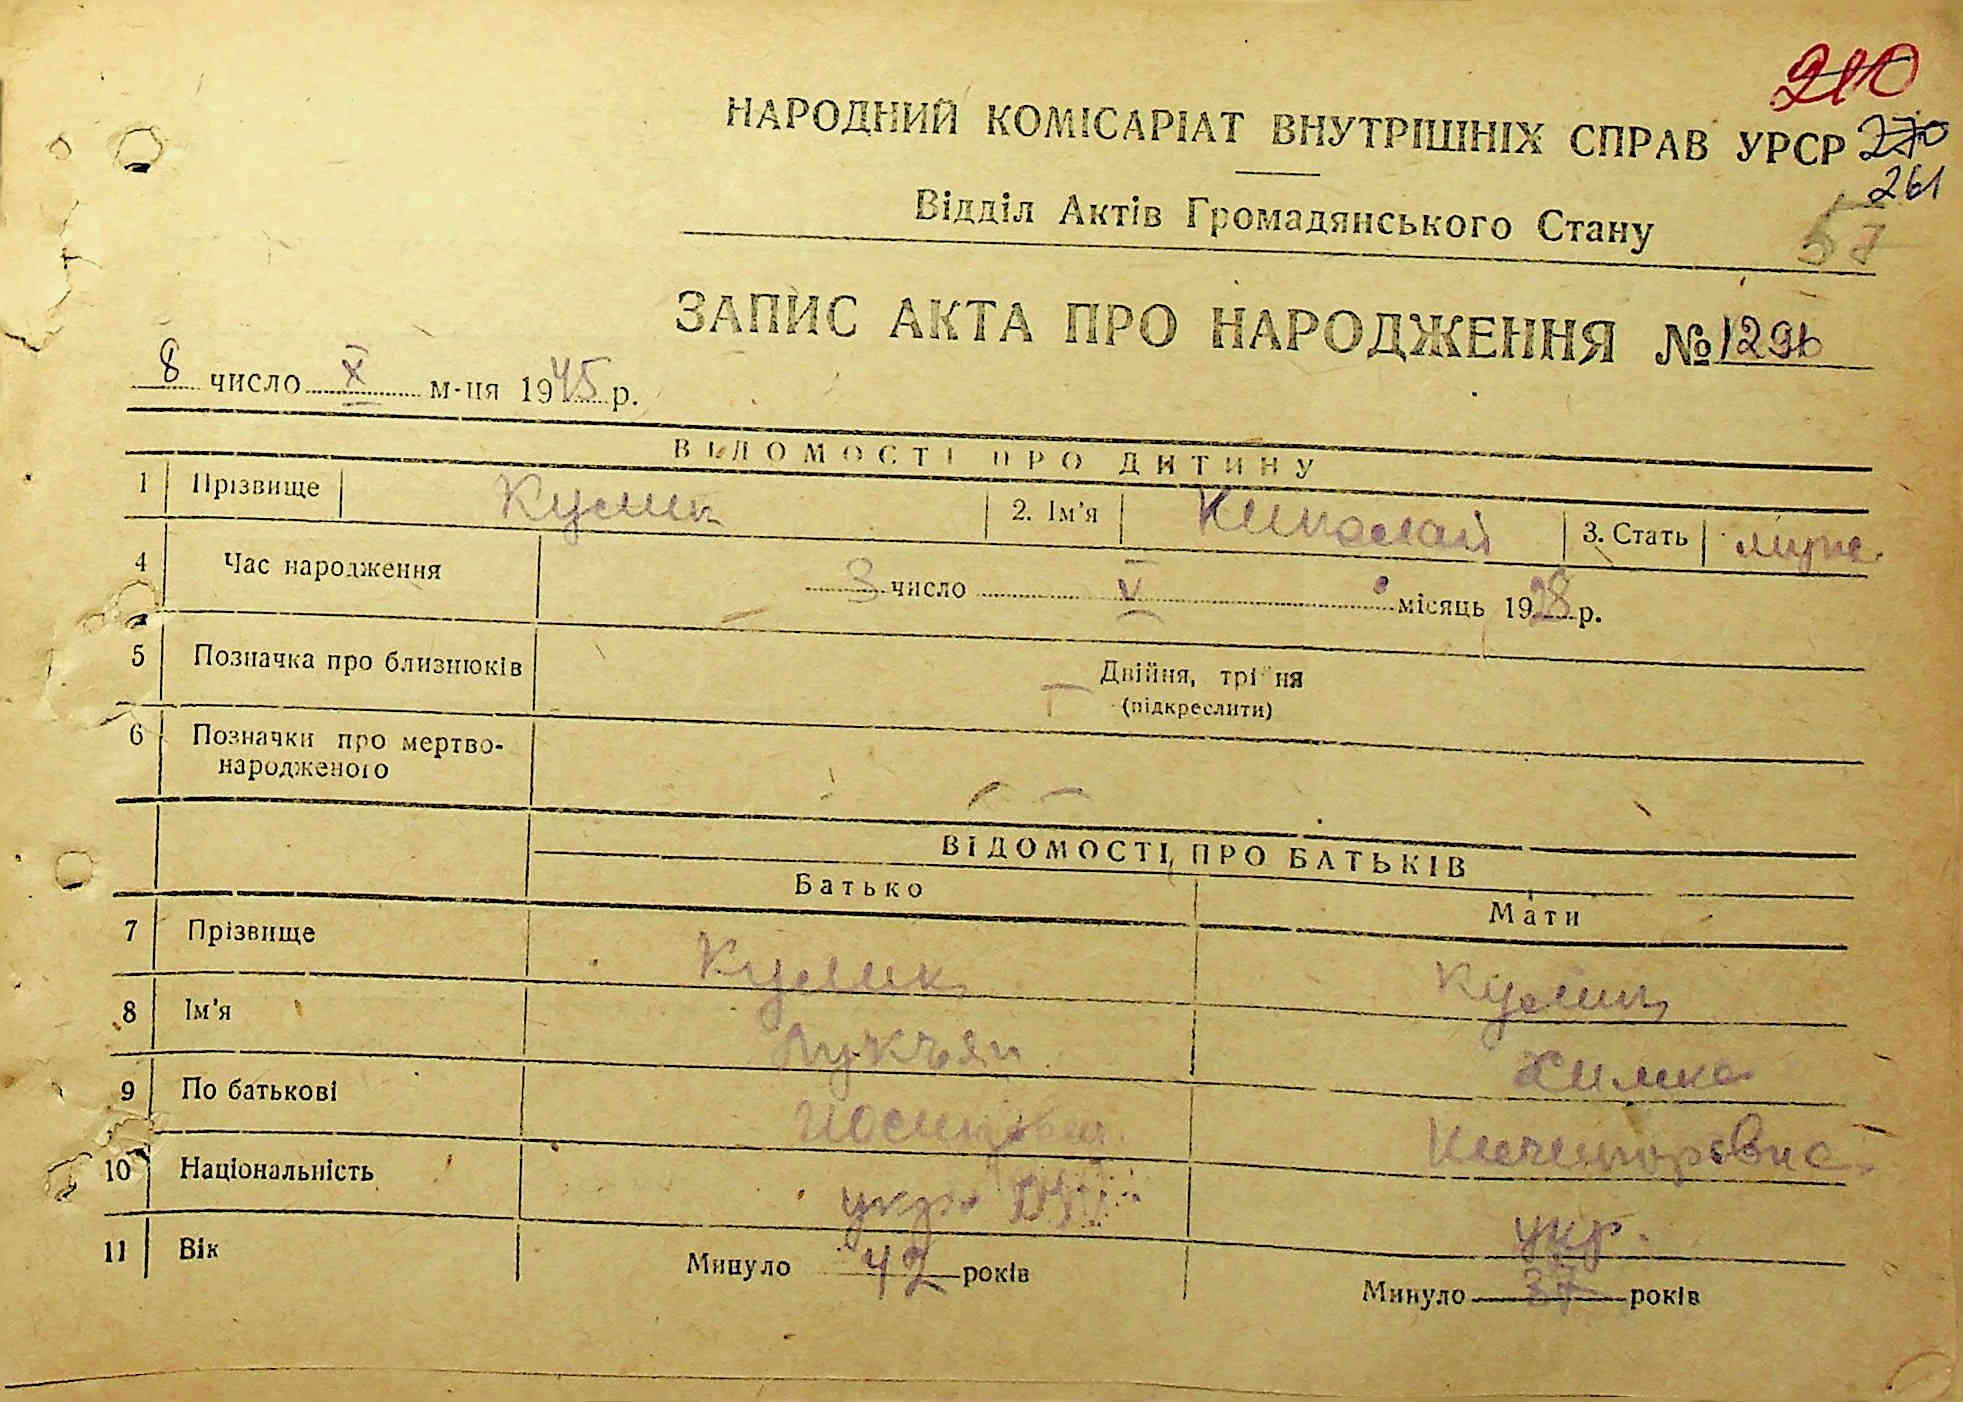 210
НАРОДНИЙ КОМІСАРІАТ ВНУТРІШНІХ СПРАВ УРСР 270
261
Відділ Актів Громадянського Стану 57
ЗАПИС АКТА ПРО НАРОДЖЕННЯ № 1296
8 число X м-ця 1945 р.
ВІДОМОСТІ ПРО ДИТИНУ
1 Прізвище Кулик 2. Ім'я Николай 3. Стать муж.
4 Час народження 3 число V місяць 1928 р.
5 Позначка про близнюків Двійня, трійня
(підкреслити)
6 Позначки про мертво-
народженого
ВІДОМОСТІ ПРО БАТЬКІВ
Батько Мати
7 Прізвище Кулик Кулик
8 Ім'я Лукъян Химка
9 По батькові Иосипович Ничипоровна
10 Національність укр. укр.
11 Вік Минуло 42 років Минуло 37 років